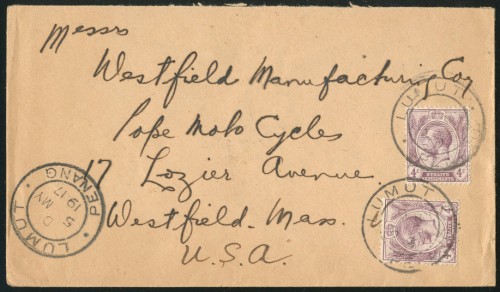 Messrs
Westfield Manufacturing Coy
Pope Moto Cycles
17 Lozier Avenue.
Westfield. Mass.
U.S.A.
LUMUT
PENANG
D
5 MY
1917
LUMUT
4c 4c
STRAITS
SETTLEMENTS
LUMUT
4c